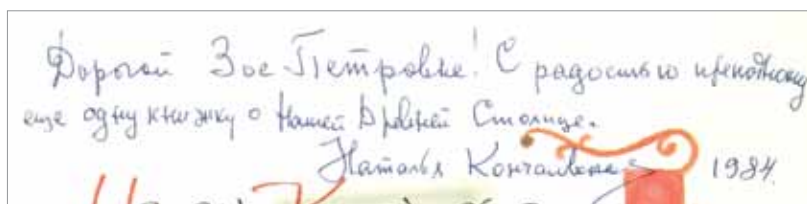 Дорогой Зое Петровне! С радостью преподношу
еще одну книжку о Нашей Древней Столице.
Наталья Кончаловская 1984.